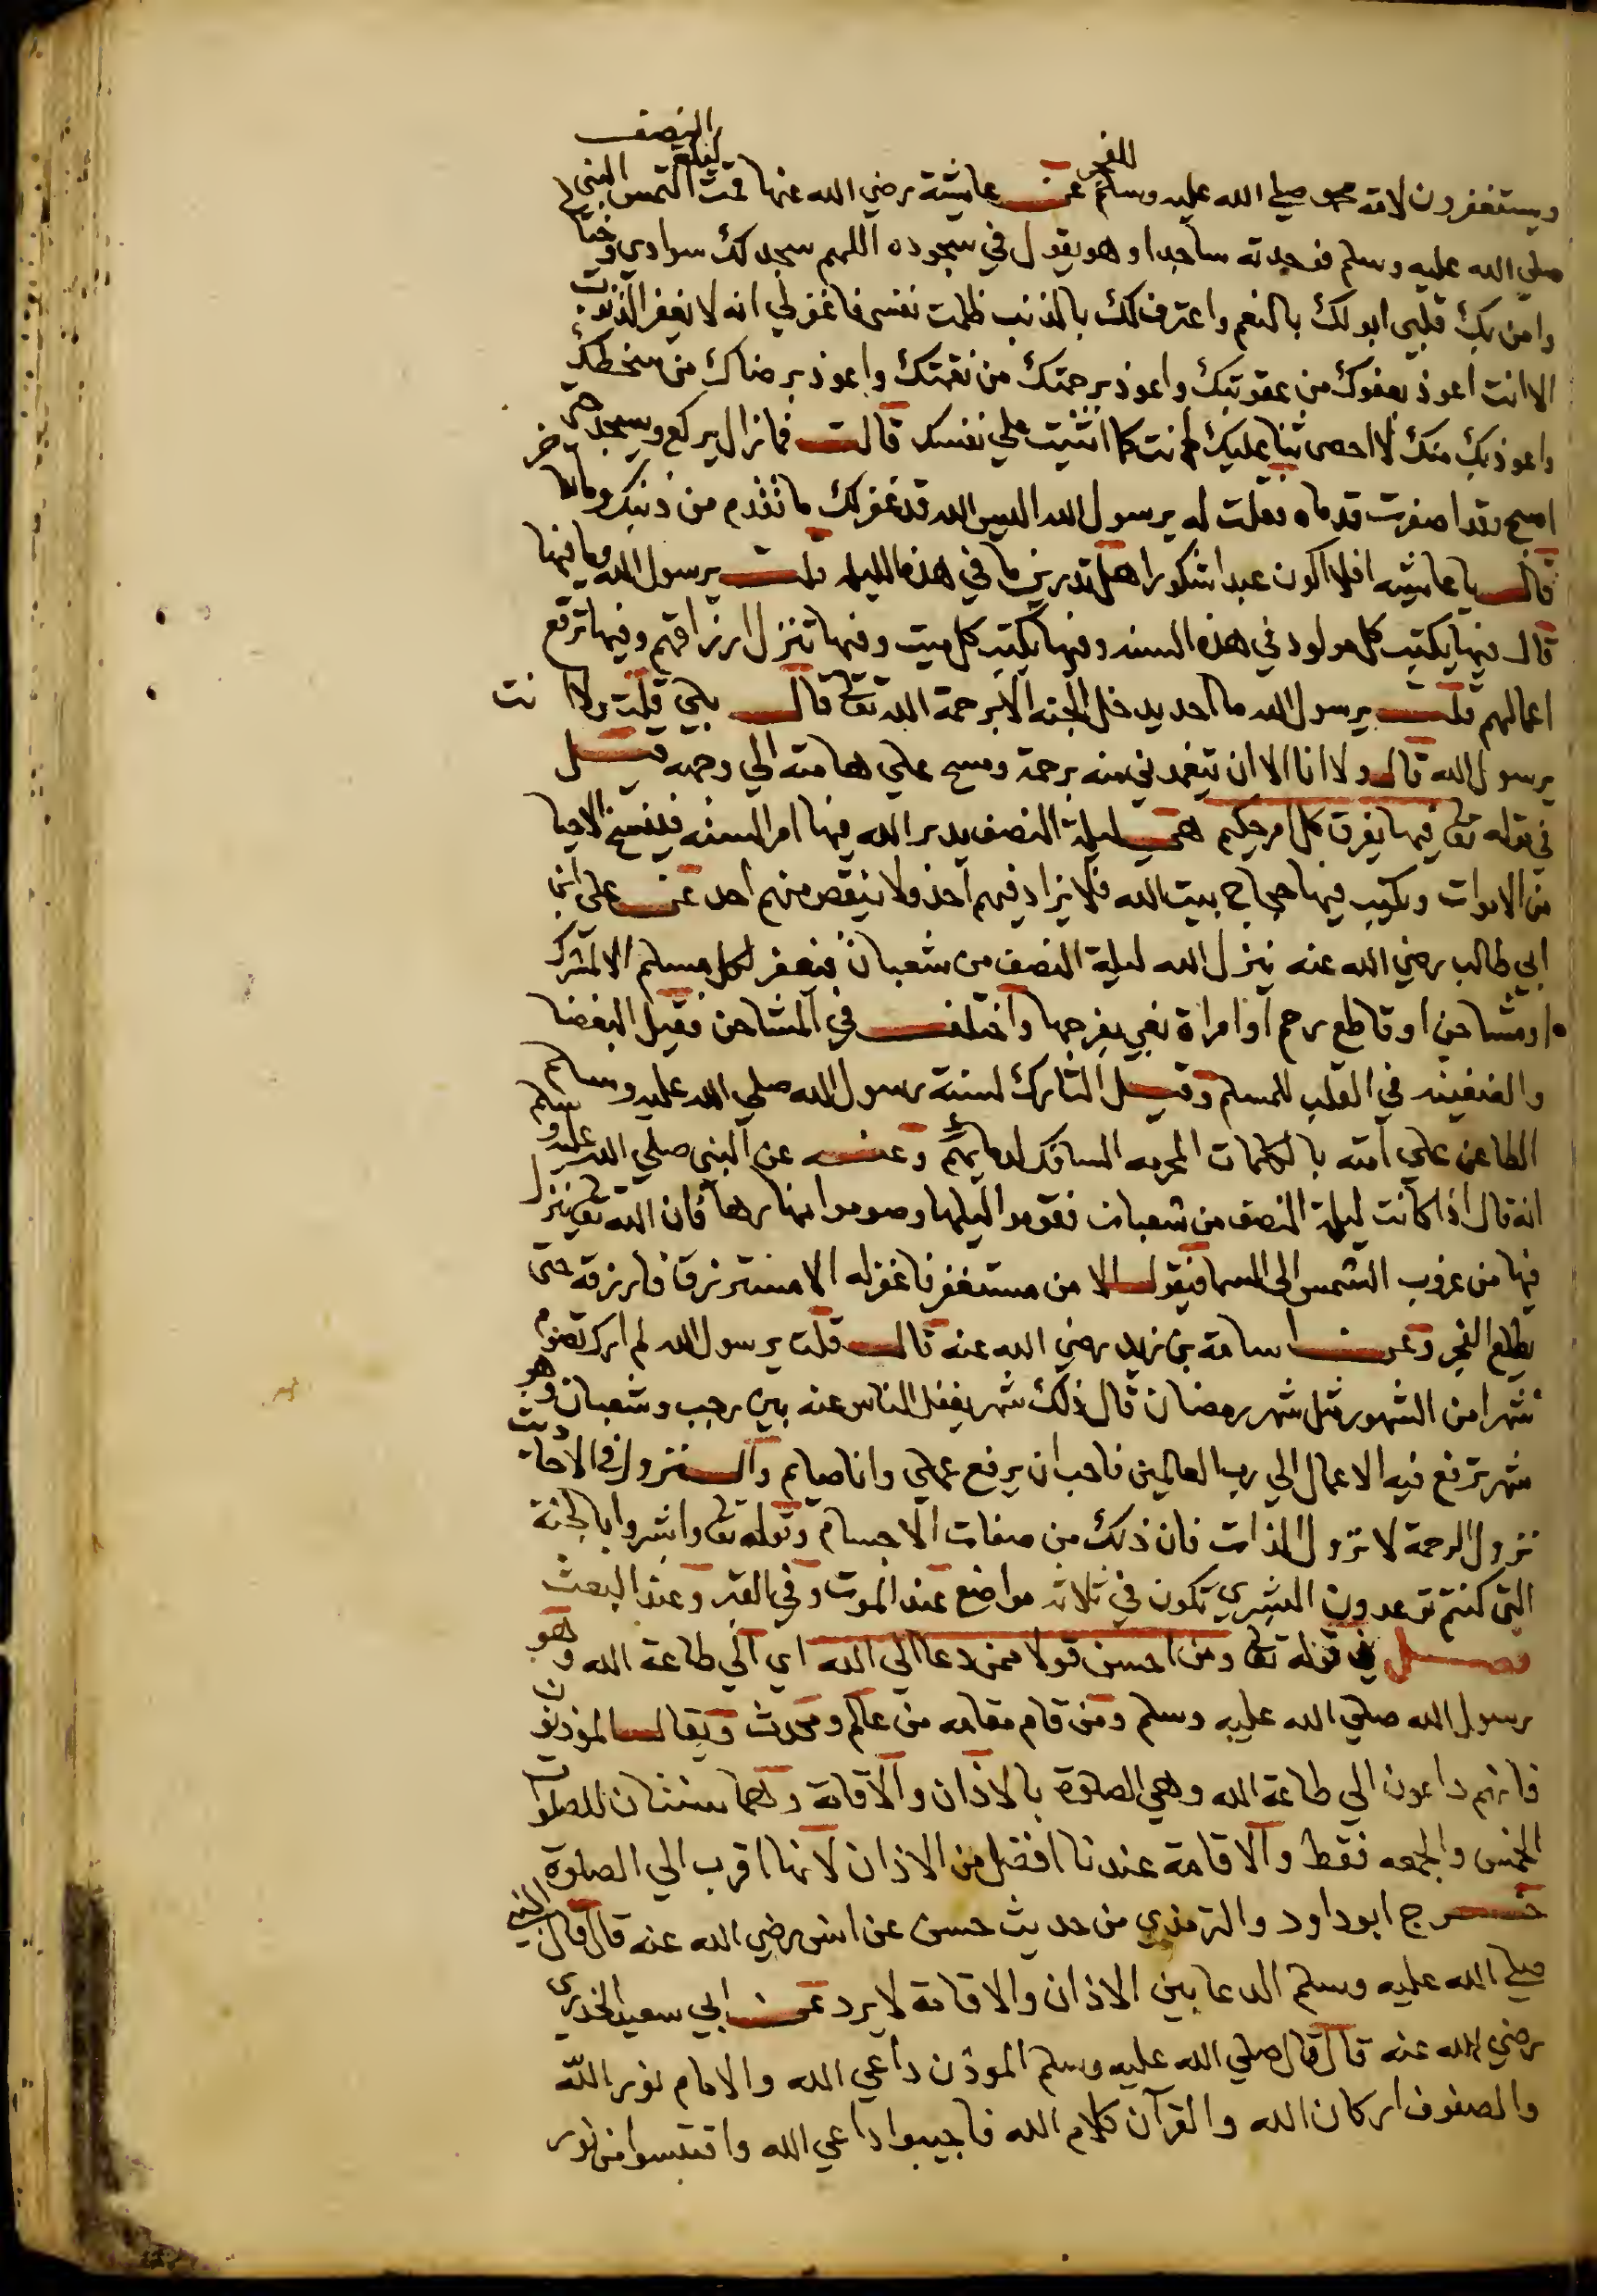 ويستغفرون لامة محمد صلى الله عليه وسلم للفجر عن عايشة رضي الله عنها قمت ليلة النصف التمس النبي
صلى الله عليه وسلم فوجدته ساجدا وهو يقول في سجوده اللهم سجد لك سوادي وخيالي
وامن بك قلبي ابو لك بالنعم واعترف لك بالذنب ظلمت نفسي فاغفر لي انه لا يغفر الذنوب
الا انت اعوذ بعفوك من عقوبتك واعوذ برحمتك من نقمتك واعوذ برضاك من سخطك
واعوذ بك منك لا احصي ثنا عليك انت كما اثنيت على نفسك قالت فما زال يركع ويسجد حتى
اصبح وقد اصفرت قدماه فقلت له يرسول الله اليس الله قد غفر لك ما تقدم من ذنبك وما تاخر
قال يا عايشه افلا اكون عبدا شكورا هل تدرين ما في هذه الليله قلت يرسول الله وما فيها
قال فيها يكتب كل مولود في هذه السنه وفيها يكتب كل ميت وفيها تنزل ارزاقهم وفيها ترفع
اعمالهم قلت يرسول الله ما احد يدخل الجنه الا برحمة الله تعالى قال بلى قلت ولا انت
يرسول الله قال ولا انا الا ان يتغمدني منه برحمة ومسح على هامته الى وجهه قيل
في قوله تعالى فيها يفرق كل امر حكيم هي ليلة النصف يدبر الله فيها امر السنه فينسخ الاحيا
من الاموات ويكتب فيها حجاج بيت الله فلا يزاد فيهم احد ولا ينقص منهم احد عن علي ابن
ابي طالب رضي الله عنه ينزل الله ليلة النصف من شعبان فيغفر لكل مسلم الا لمشرك
او مشاحن او قاطع رحم او امراة تغي بفرجها واختلف في المشاحن فقيل البغضا
والضغينه في القلب للمسلم وقيل التارك لسنة رسول الله صلى الله عليه وسلم
الطاعن على امته بالكلمات المحرمه السافك لدمايهم وعنه عن النبي صلى الله عليه وسلم
انه قال اذا كانت ليلة النصف من شعبان فقوموا ليلها وصوموا نهارها فان الله تعالى ينزل
فيها من غروب الشمس الى السما فيقول الا من مستغفر فاغفر له الا مسترزقا فارزقه حتى
يطلع الفجر وعن اسامة بن زيد رضي الله عنه قال قلت يرسول الله لم ارك تصوم
شهرا من الشهور مثل شهر رمضان قال ذلك شهر يغفل الناس عنه بين رجب وشعبان وهو
شهر ترفع فيه الاعمال الى رب العالمين فاحب ان يرفع عملي وانا صايم والنزول في الاحاديث
نزول الرحمة لا نزول الذات فان ذلك من صفات الاجسام وقوله تعالى وابشروا بالجنة
التي كنتم توعدون البشري تكون في ثلاثه مواضع عند الموت وفي القبر وعند البعث
فصل في قوله تعالى ومن احسن قولا ممن دعا الى الله اي الى طاعة الله وهو
رسول الله صلى الله عليه وسلم ومن قام مقامه من عالم ومحدث ويقال الموذنون
فانهم داعون الي طاعة الله وهي الصلوة بالاذان والاقامة وهما سنتان للصلوات
الخمس والجمعه فقط والاقامة عندنا افضل من الاذان لانها اقرب الي الصلوة
خرج ابو داود والترمذي من حديث حسن عن انس رضي الله عنه قال قال النبي
صلى الله عليه وسلم الدعا بين الاذان والاقامة لا يرد عن ابي سعيد الخدري
رضي الله عنه قال قال صلى الله عليه وسلم الموذن داعي الله والامام نور الله
والصفوف اركان الله والقرآن كلام الله فاجيبوا داعي الله واقتبسوا من نور